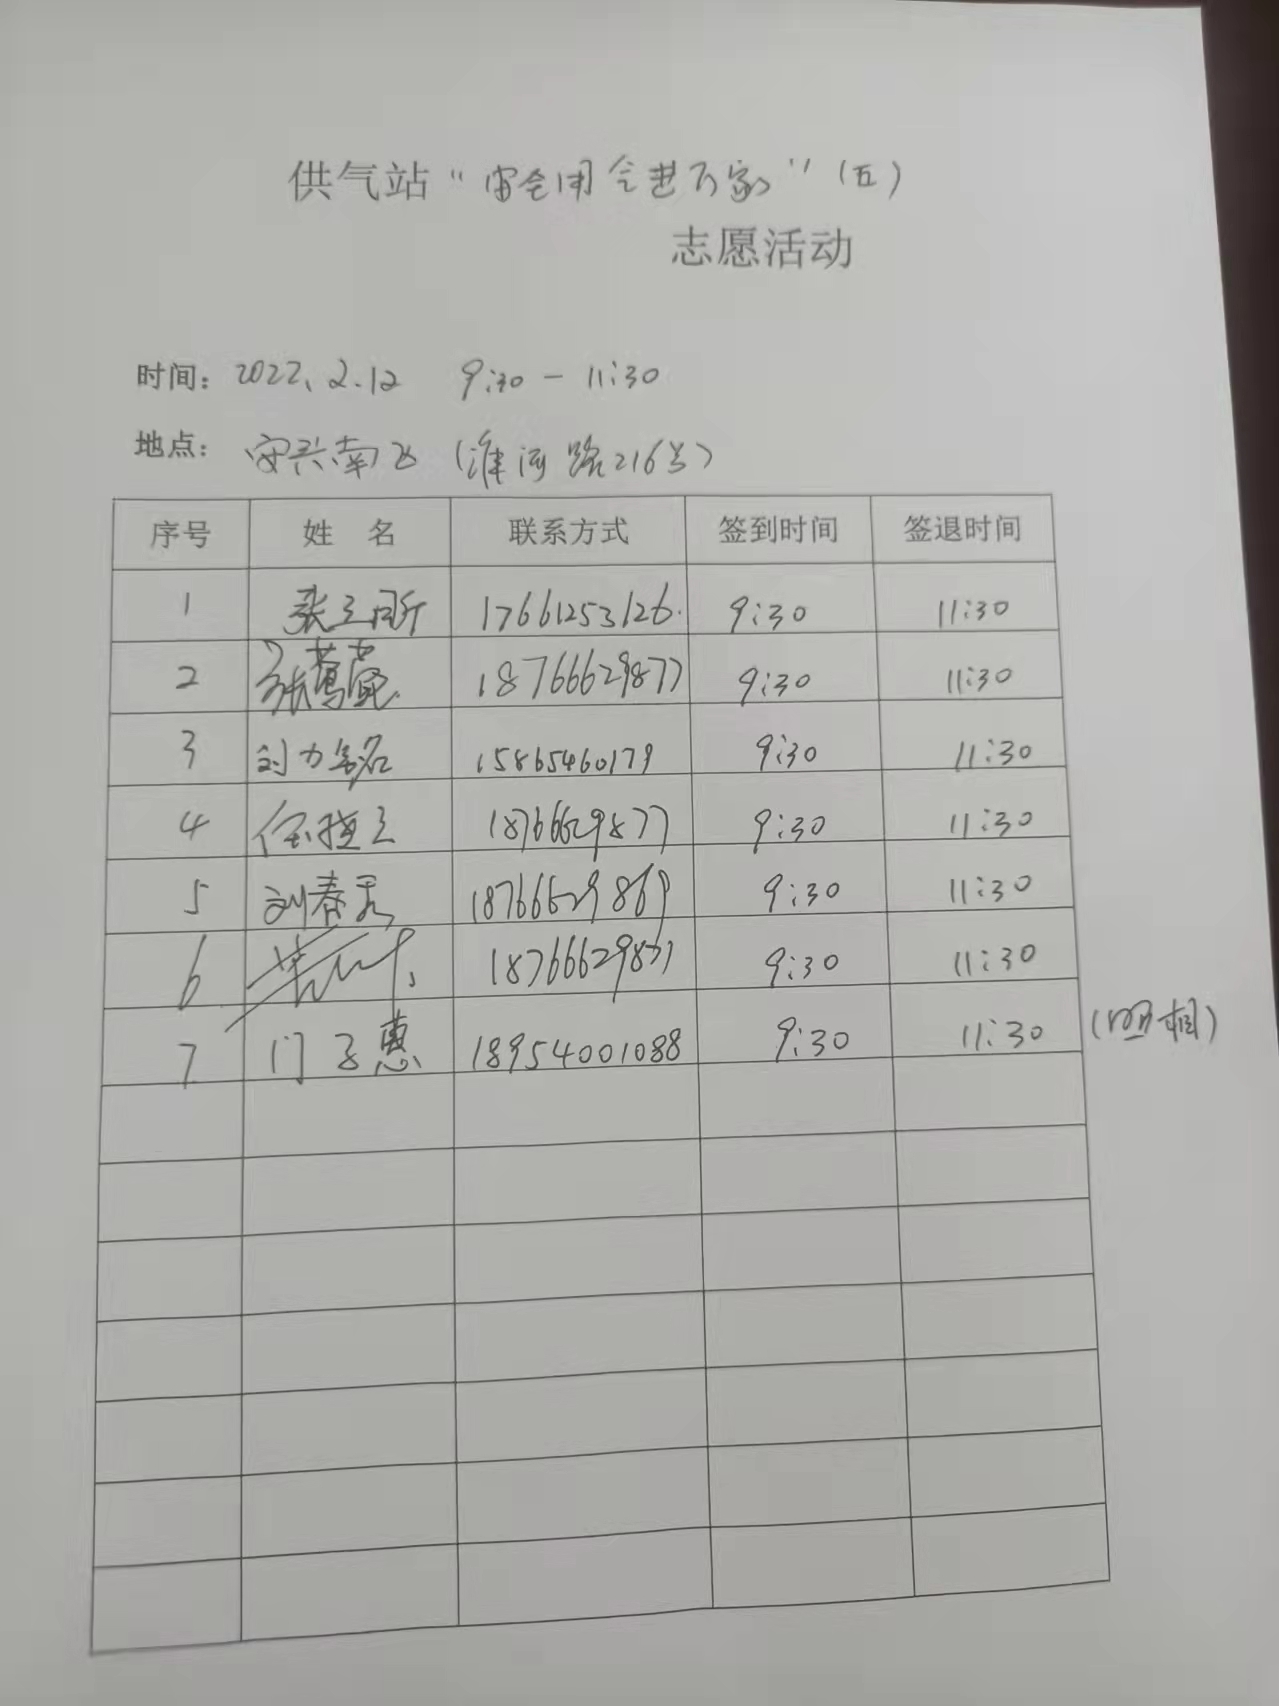 供气站“安全用气进万家”(五)
志愿活动
时间: 2022.2.12 9:30-11:30
地点: 安兴南区(淮河路216号)
序号 姓名 联系方式 签到时间 签退时间
1 张立 17661253126. 9:30 11:30
2 张 18766629877 9:30 11:30
3 刘力铭 15865460179 9:30 11:30
4 任 18766629877 9:30 11:30
5 刘春秀 18766629869 9:30 11:30
6 18766629877 9:30 11:30
7 门子惠 18954001088 9:30 11:30 (照相)